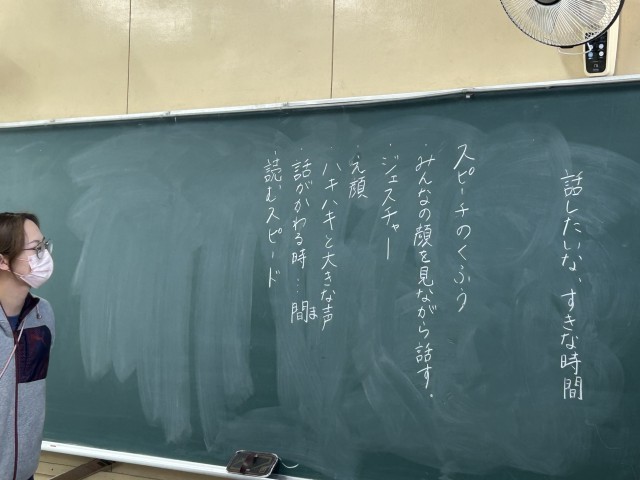 話したいな、すきな時間
スピーチのくふう
・みんなの顔を見ながら話す。
・ジェスチャー
・え顔
・ハキハキと大きな声
・話がかわる時…間
ま
・読むスピード